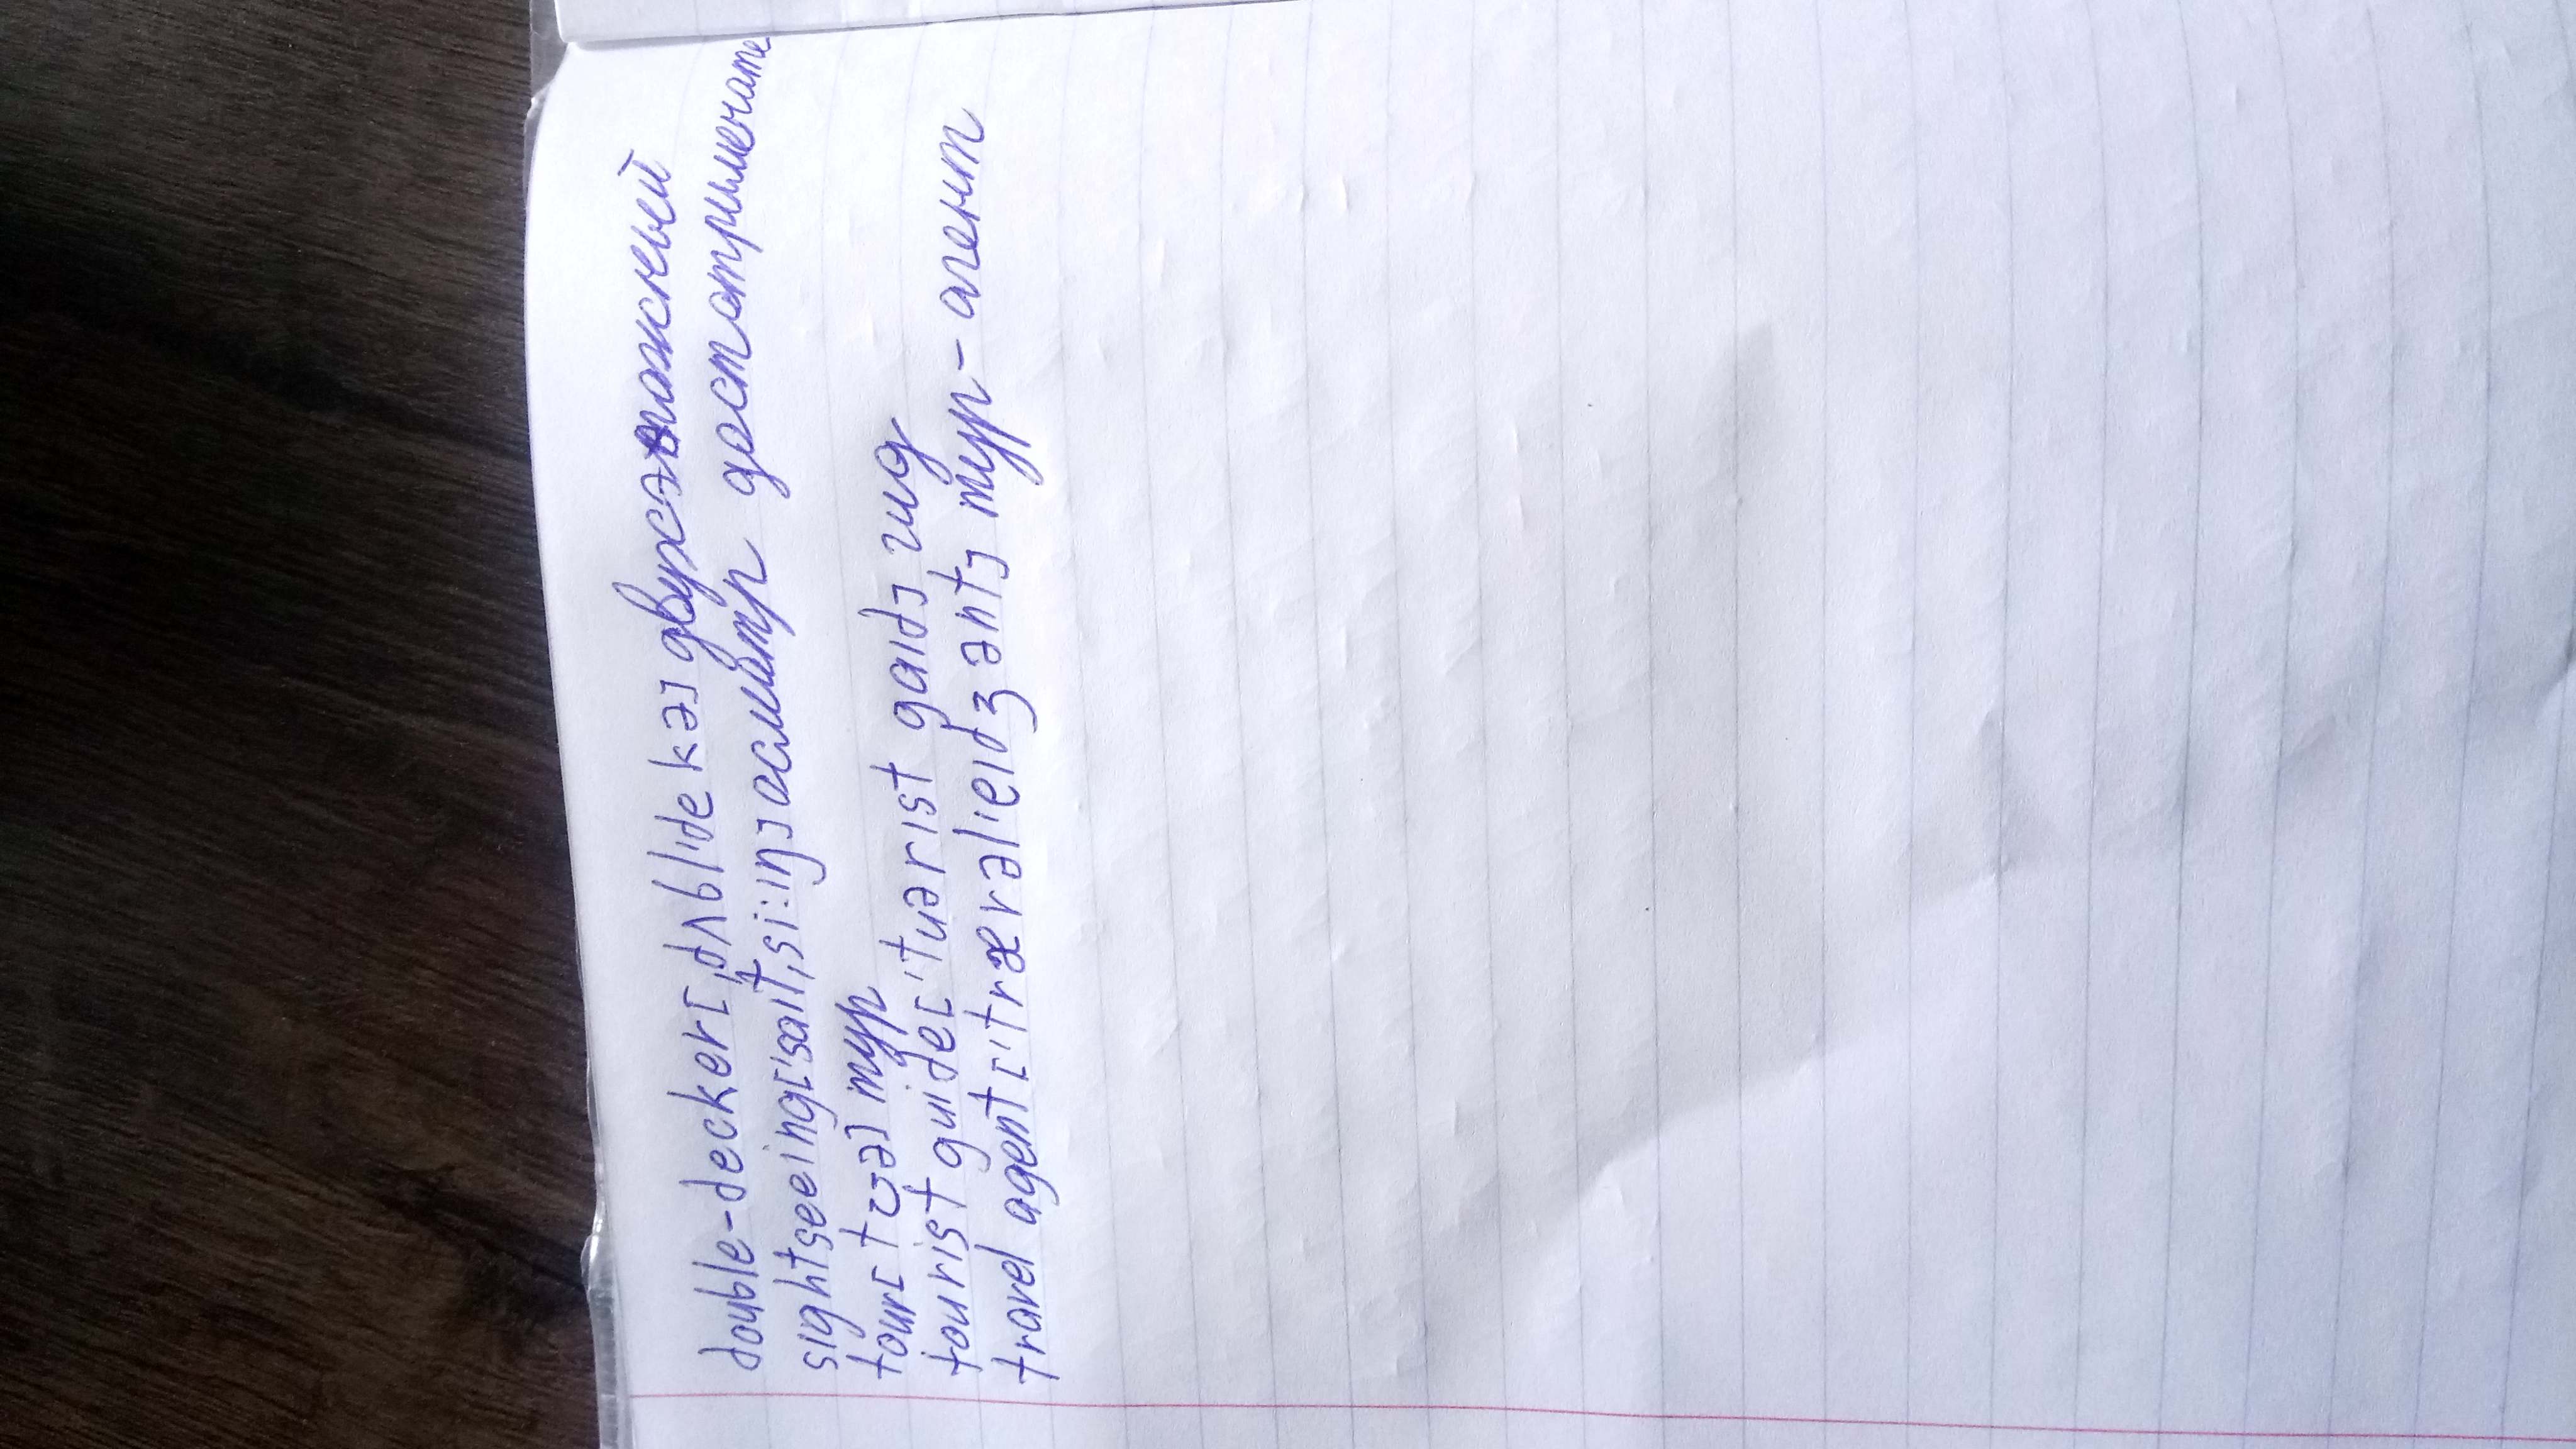 double-decker [ˌdʌblˈdekə] двухэтажный
sightseeing [ˈsaɪtˌsiːɪŋ] осмотр достопримечате
tour [tʊə] тур
tourist guide [ˈtuərɪst gaɪd] гид
travel agent [ˈtrærəlˈeɪdʒənt] тур-агент